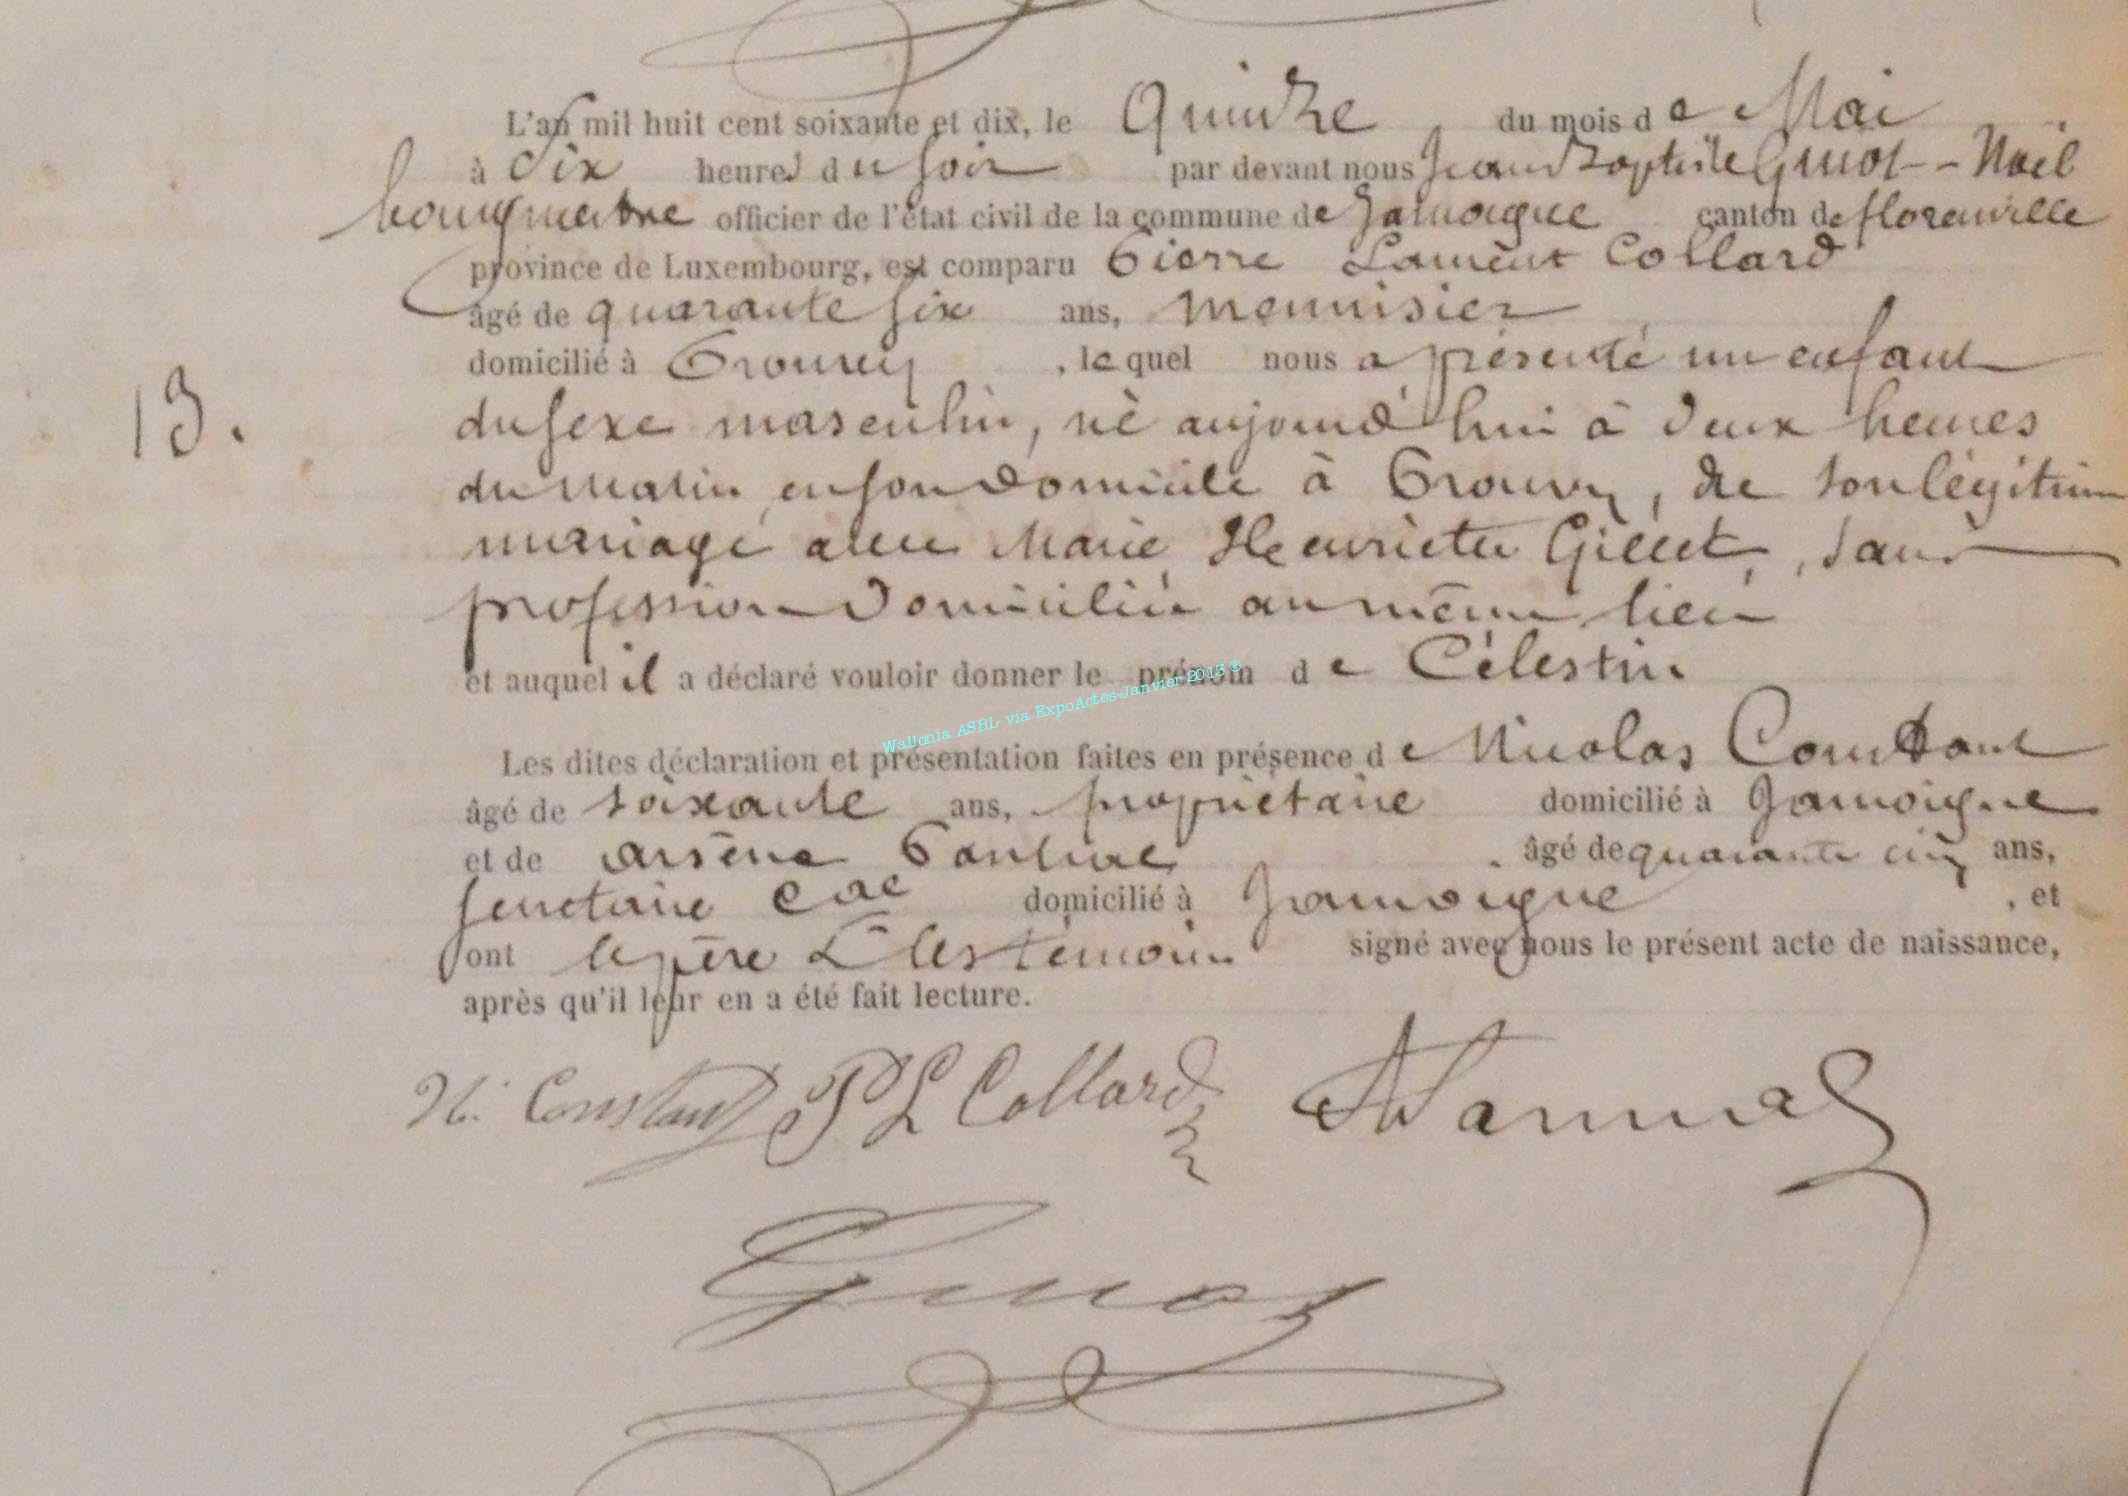 L'an mil huit cent soixante et dix, le Quinze du mois de Mai
à Six heures du soir par devant nous Jean Baptiste Guiot-Noël
bourgmestre officier de l'état civil de la commune de Jamoigne canton de florenville
province de Luxembourg, est comparu Pierre Laurent Collard
âgé de quarante six ans, menuisier
domicilié à Prouvy, lequel nous a présenté un enfant
13.
du sexe masculin, né aujourd'hui à deux heures
du matin en son domicile à Prouvy, de son légitime
mariage avec Marie Henriette Gillet, sans
profession domiciliée au même lieu
et auquel il a déclaré vouloir donner le prénom de Célestin
Wallonia ASBL via ExpoActes-Janvier 2013 ©
Les dites déclaration et présentation faites en présence de Nicolas Constant
âgé de soixante ans, propriétaire domicilié à Jamoigne
et de arsène âgé de quarante cinq ans,
secretaire cal domicilié à Jamoigne, et
ont le père & les témoins signé avec nous le présent acte de naissance,
après qu'il leur en a été fait lecture.
N. Constant PL Collard
Guiot